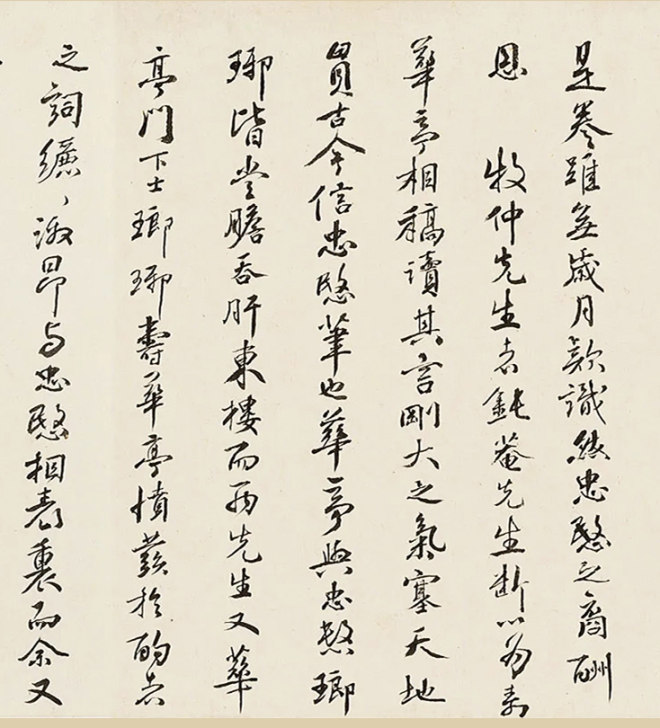 是卷雖無歲月款識忠愍之裔酬
恩 牧仲先生者鈍菴先生斷以為壽
華亭相稿讀其言剛大之氣塞天地
貫古今信忠愍筆也華亭與忠愍瑯
琊皆嘗膽吞肝東樓而兩先生又華
亭門下士瑯琊壽華亭憤發於酌者
之詞纚〻激昂与忠愍相表裏而余又